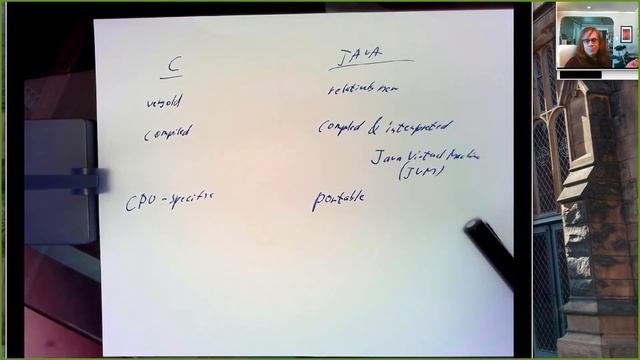 C JAVA
very old relatively new
compiled compiled & interpreted
Java Virtual Machine
(JVM)
CPU-specific portable